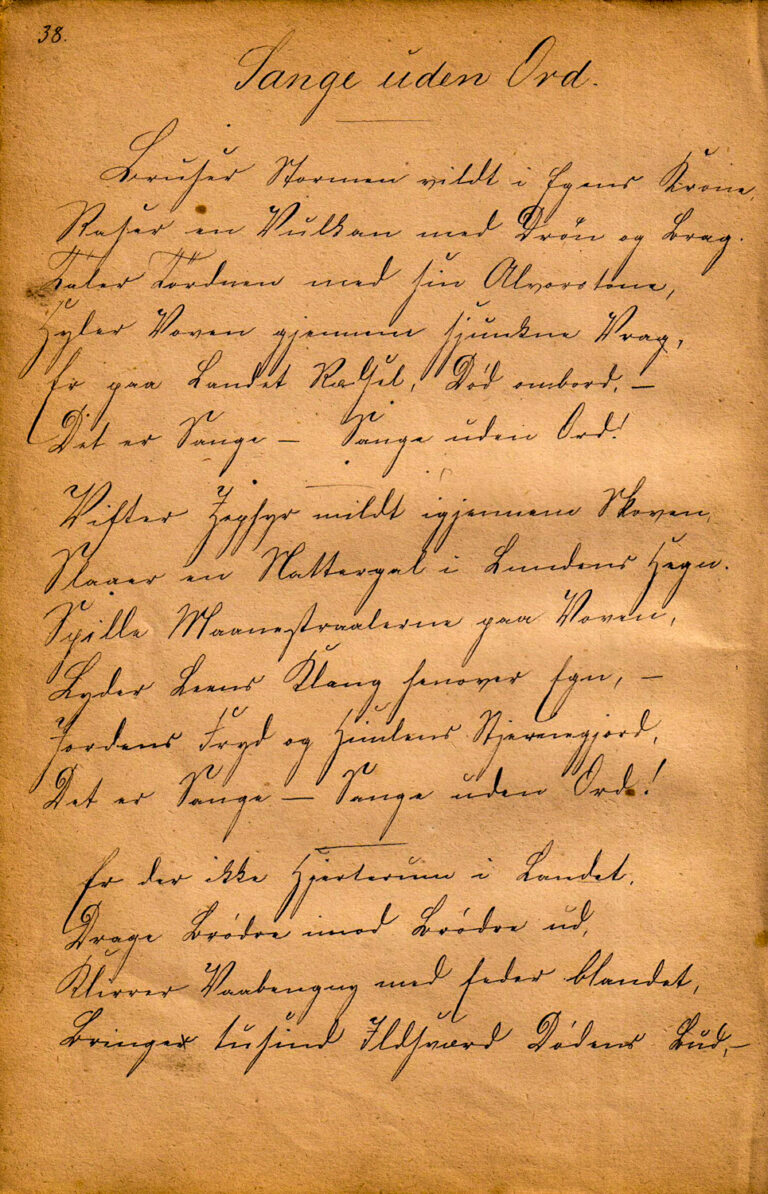 38.
Sange uden Ord.
Bruser Stormen vildt i Egens Krone,
Raser en Vulkan med Drön og Brag.
Taler Tordnen med sin Alvorstone,
Hyler Voven gjennem sjunkne Vrag,
Er paa Landet Rasel, Død ombord, —
Det er Sange — Sange uden Ord!
Vifter Zephyr mildt igjennem Skoven,
Slaaer en Nattergal i Lundens Hegn.
Spille Maanestraalerne paa Voven,
Lyder Leens Klang henover Egn, —
Jordens Fryd og Himlens Stjernegjord,
Det er Sange — Sange uden Ord!
Er der ikke Hjerterum i Landet,
Drage Brödre imod Brödre ud,
Klirrer Vaabengny med Eder blandet,
Bringer tusind Ildsværd Dødens Bud,—